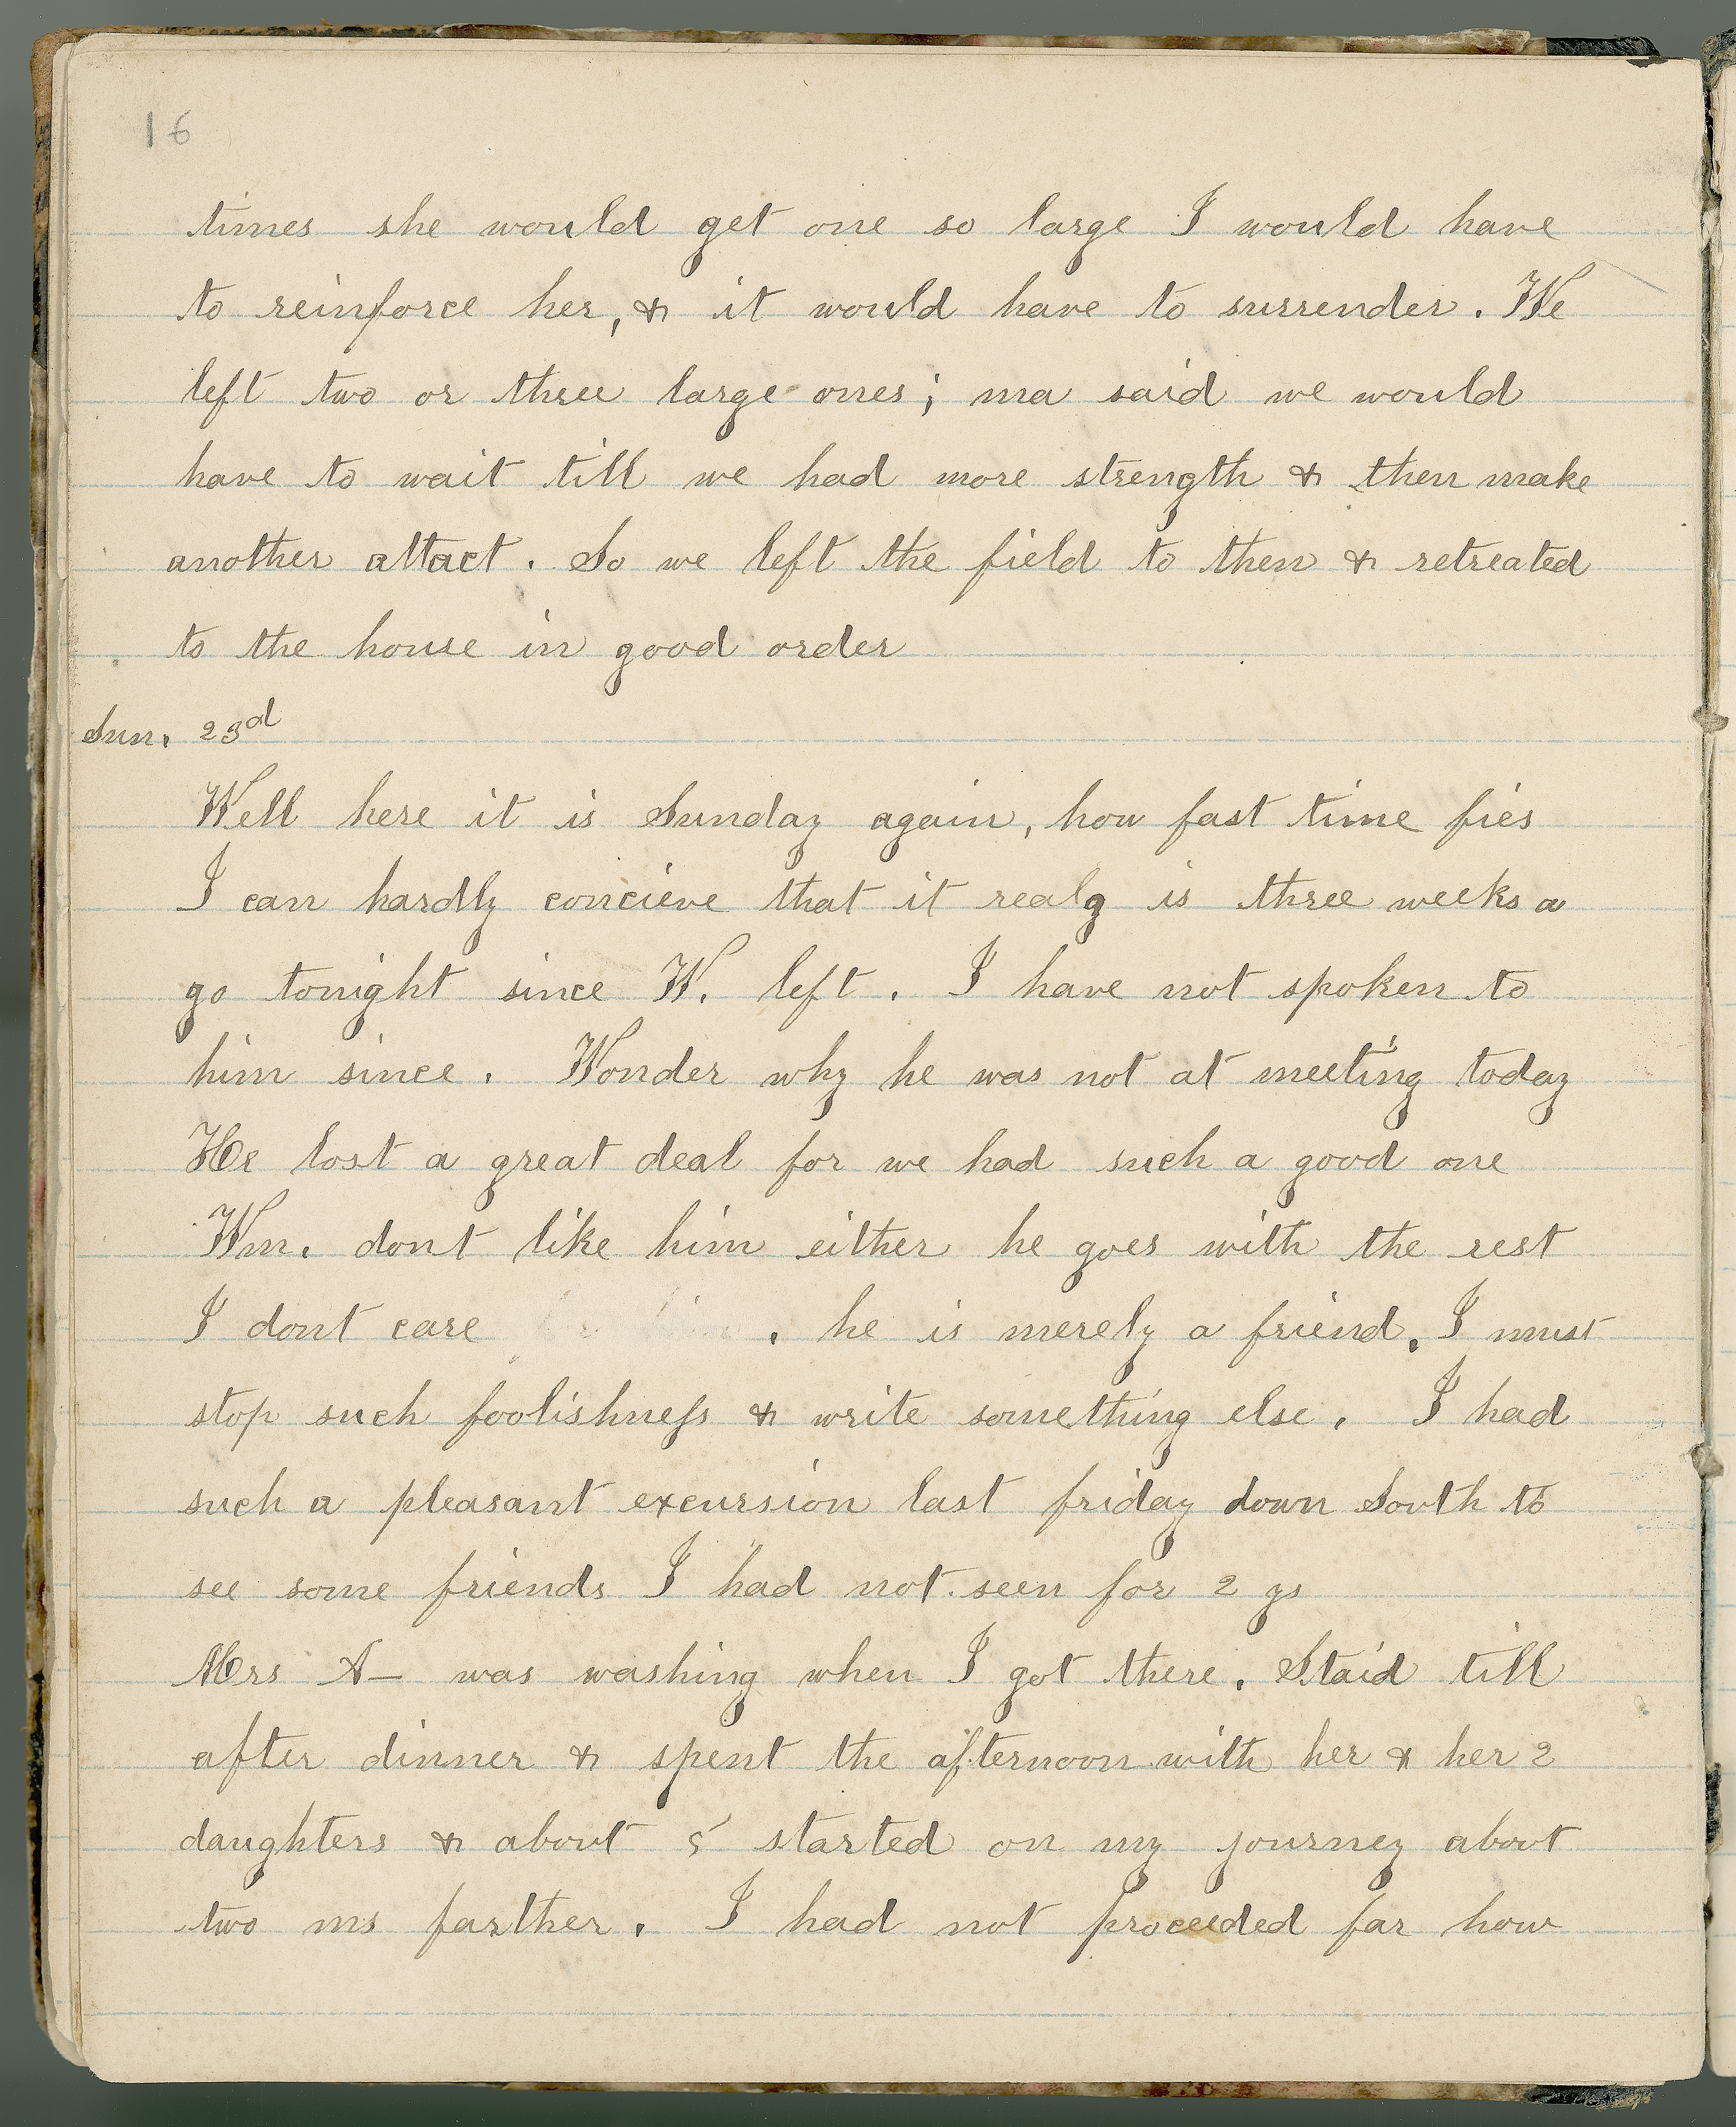 16
times she would get one so large I would have
to reinforce her, & it would have to surrender. We
left two or three large ones; ma said we would
have to wait till we had more strength & then make
another attact. So we left the field to then & retreated
to the house in good order
Sun. 23d
Well here it is Sunday again, how fast time fies
I can hardly concieve that it realy is three weeks a
go tonight since W. left. I have not spoken to
him since. Wonder why he was not at meeting today
He lost a great deal for we had such a good one
Wm. dont like him either he goes with the rest
I dont care . he is merely a friend. I must
stop such foolishness & write something else. I had
such a pleasant excursion last friday down South to
see some friends I had not seen for 2 ys
Mrs A— was washing when I got there. Staid till
after dinner & spent the afternoon with her & her 2
daughters & about 5 started on my journey about
two ms farther. I had not proceeded far how